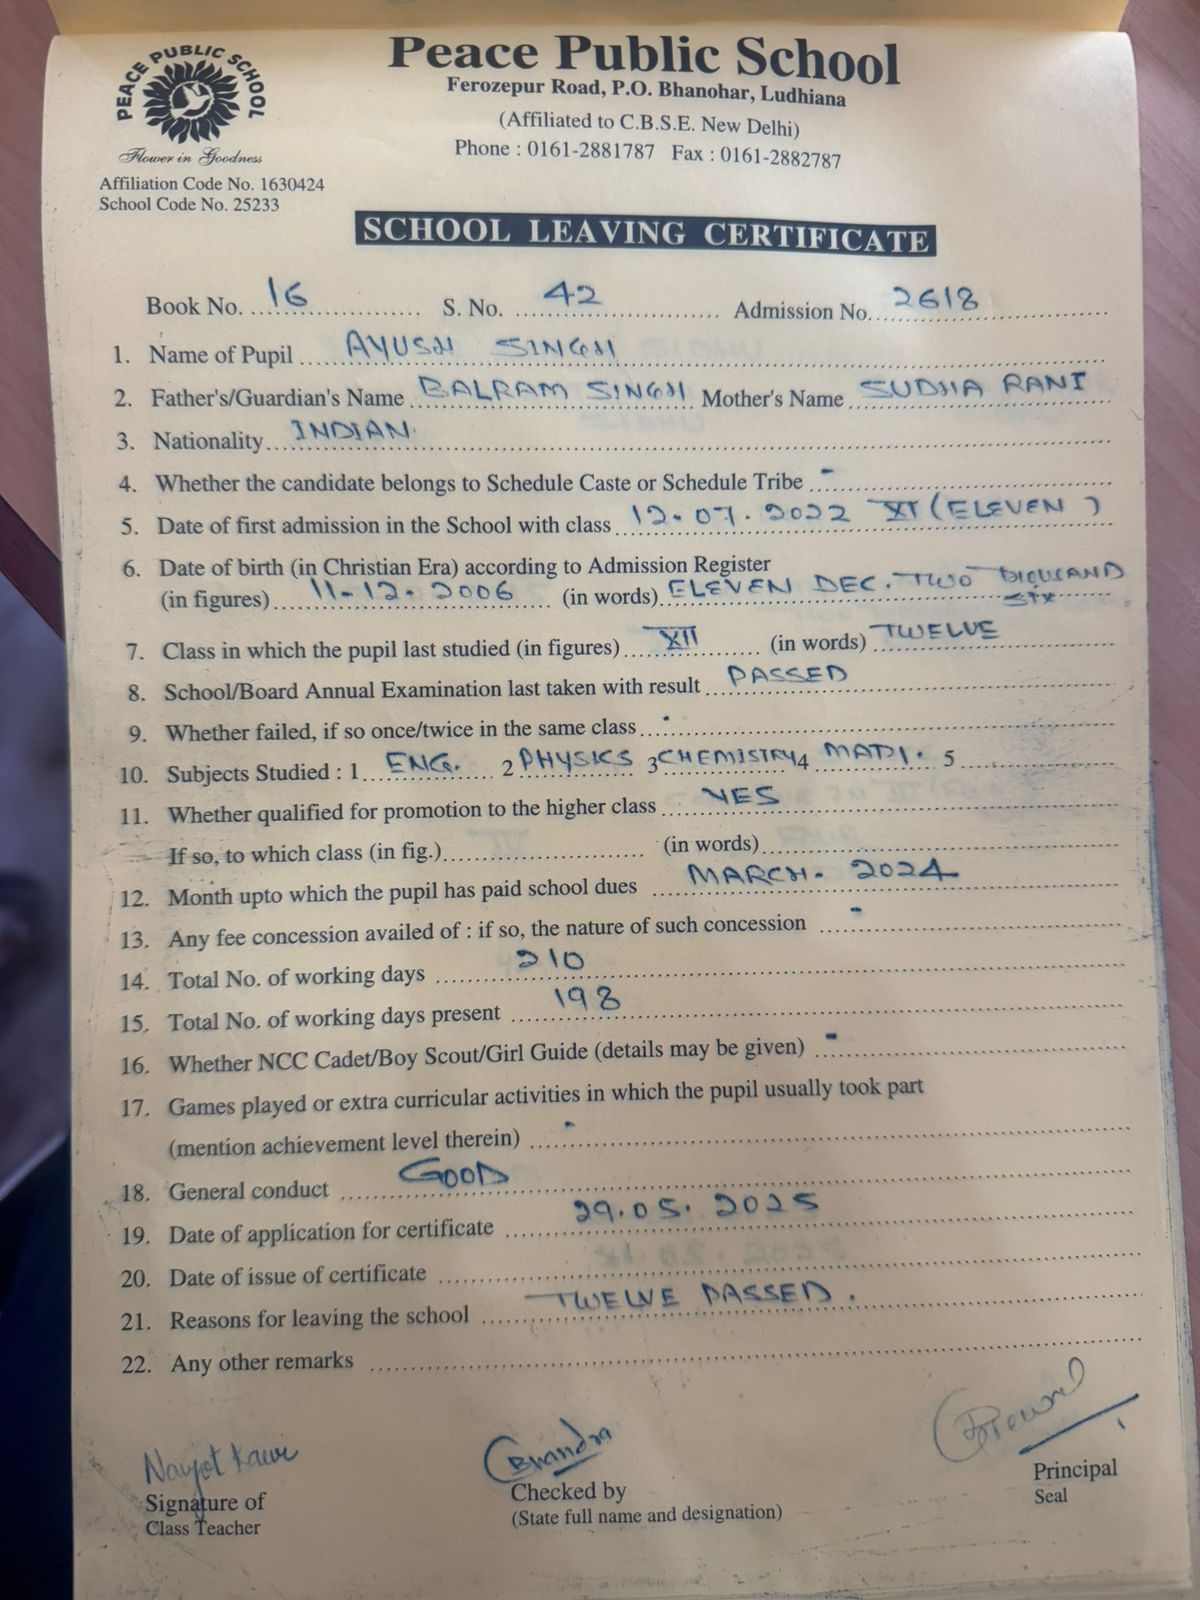 PEACE PUBLIC SCHOOL
Flower in Goodness
Affiliation Code No. 1630424
School Code No. 25233
Peace Public School
Ferozepur Road, P.O. Bhanohar, Ludhiana
(Affiliated to C.B.S.E. New Delhi)
Phone : 0161-2881787 Fax : 0161-2882787
SCHOOL LEAVING CERTIFICATE
Book No. 16 S. No. 42 Admission No. 2618
1. Name of Pupil AYUSH SINGH
2. Father's/Guardian's Name BALRAM SINGH Mother's Name SUDHA RANI
3. Nationality INDIAN.
4. Whether the candidate belongs to Schedule Caste or Schedule Tribe -
5. Date of first admission in the School with class 12.07.2022 XI (ELEVEN)
6. Date of birth (in Christian Era) according to Admission Register
(in figures) 11-12.2006 (in words) ELEVEN DEC. TWO THOUSAND SIX
7. Class in which the pupil last studied (in figures) XII (in words) TWELVE
8. School/Board Annual Examination last taken with result PASSED
9. Whether failed, if so once/twice in the same class -
10. Subjects Studied : 1 ENG. 2 PHYSICS 3 CHEMISTRY 4 MATH. 5
11. Whether qualified for promotion to the higher class YES
If so, to which class (in fig.) (in words)
12. Month upto which the pupil has paid school dues MARCH. 2024
13. Any fee concession availed of : if so, the nature of such concession -
14. Total No. of working days 210
15. Total No. of working days present 198
16. Whether NCC Cadet/Boy Scout/Girl Guide (details may be given) -
17. Games played or extra curricular activities in which the pupil usually took part
(mention achievement level therein) -
18. General conduct GOOD
19. Date of application for certificate 29.05.2025
20. Date of issue of certificate
21. Reasons for leaving the school TWELVE PASSED.
22. Any other remarks
Navjot Kaur
Bhandra
Signature of
Class Teacher
Checked by
(State full name and designation)
Principal
Seal